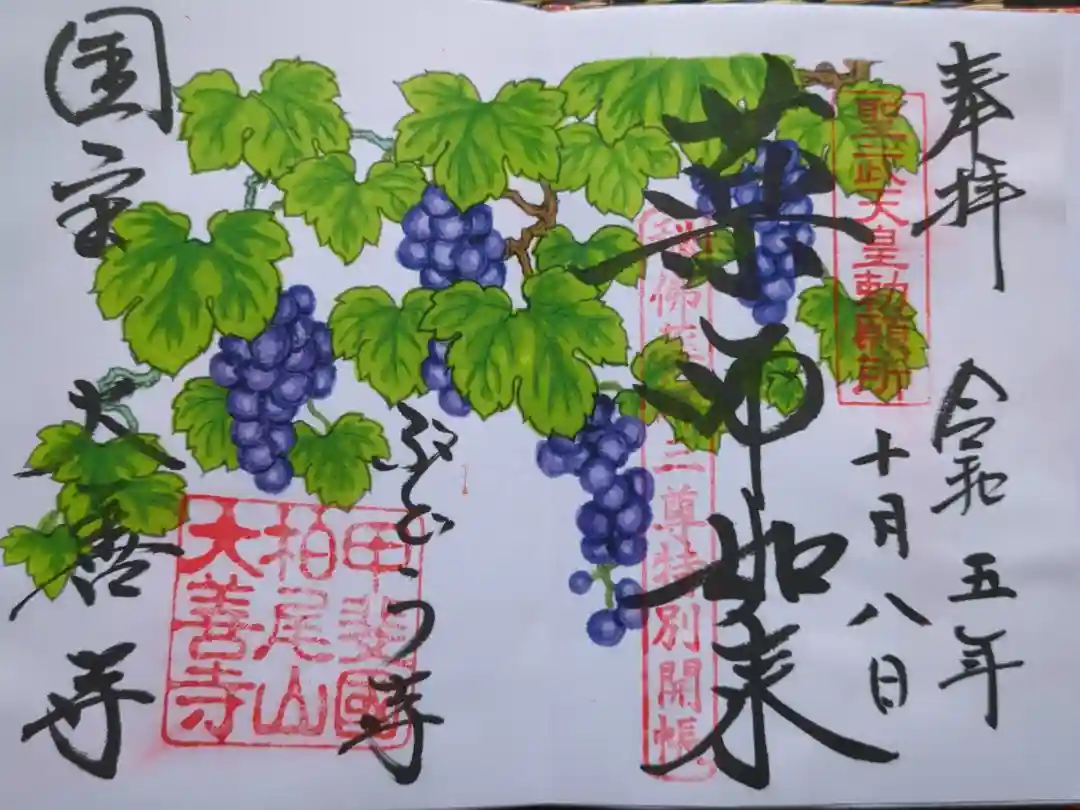 奉拝
令和五年
十月八日
聖武天皇勅願所
薬師如来
秘佛薬師三尊特別開帳
ぶどう寺
甲斐國
柏尾山
大善寺
国宝
大善寺